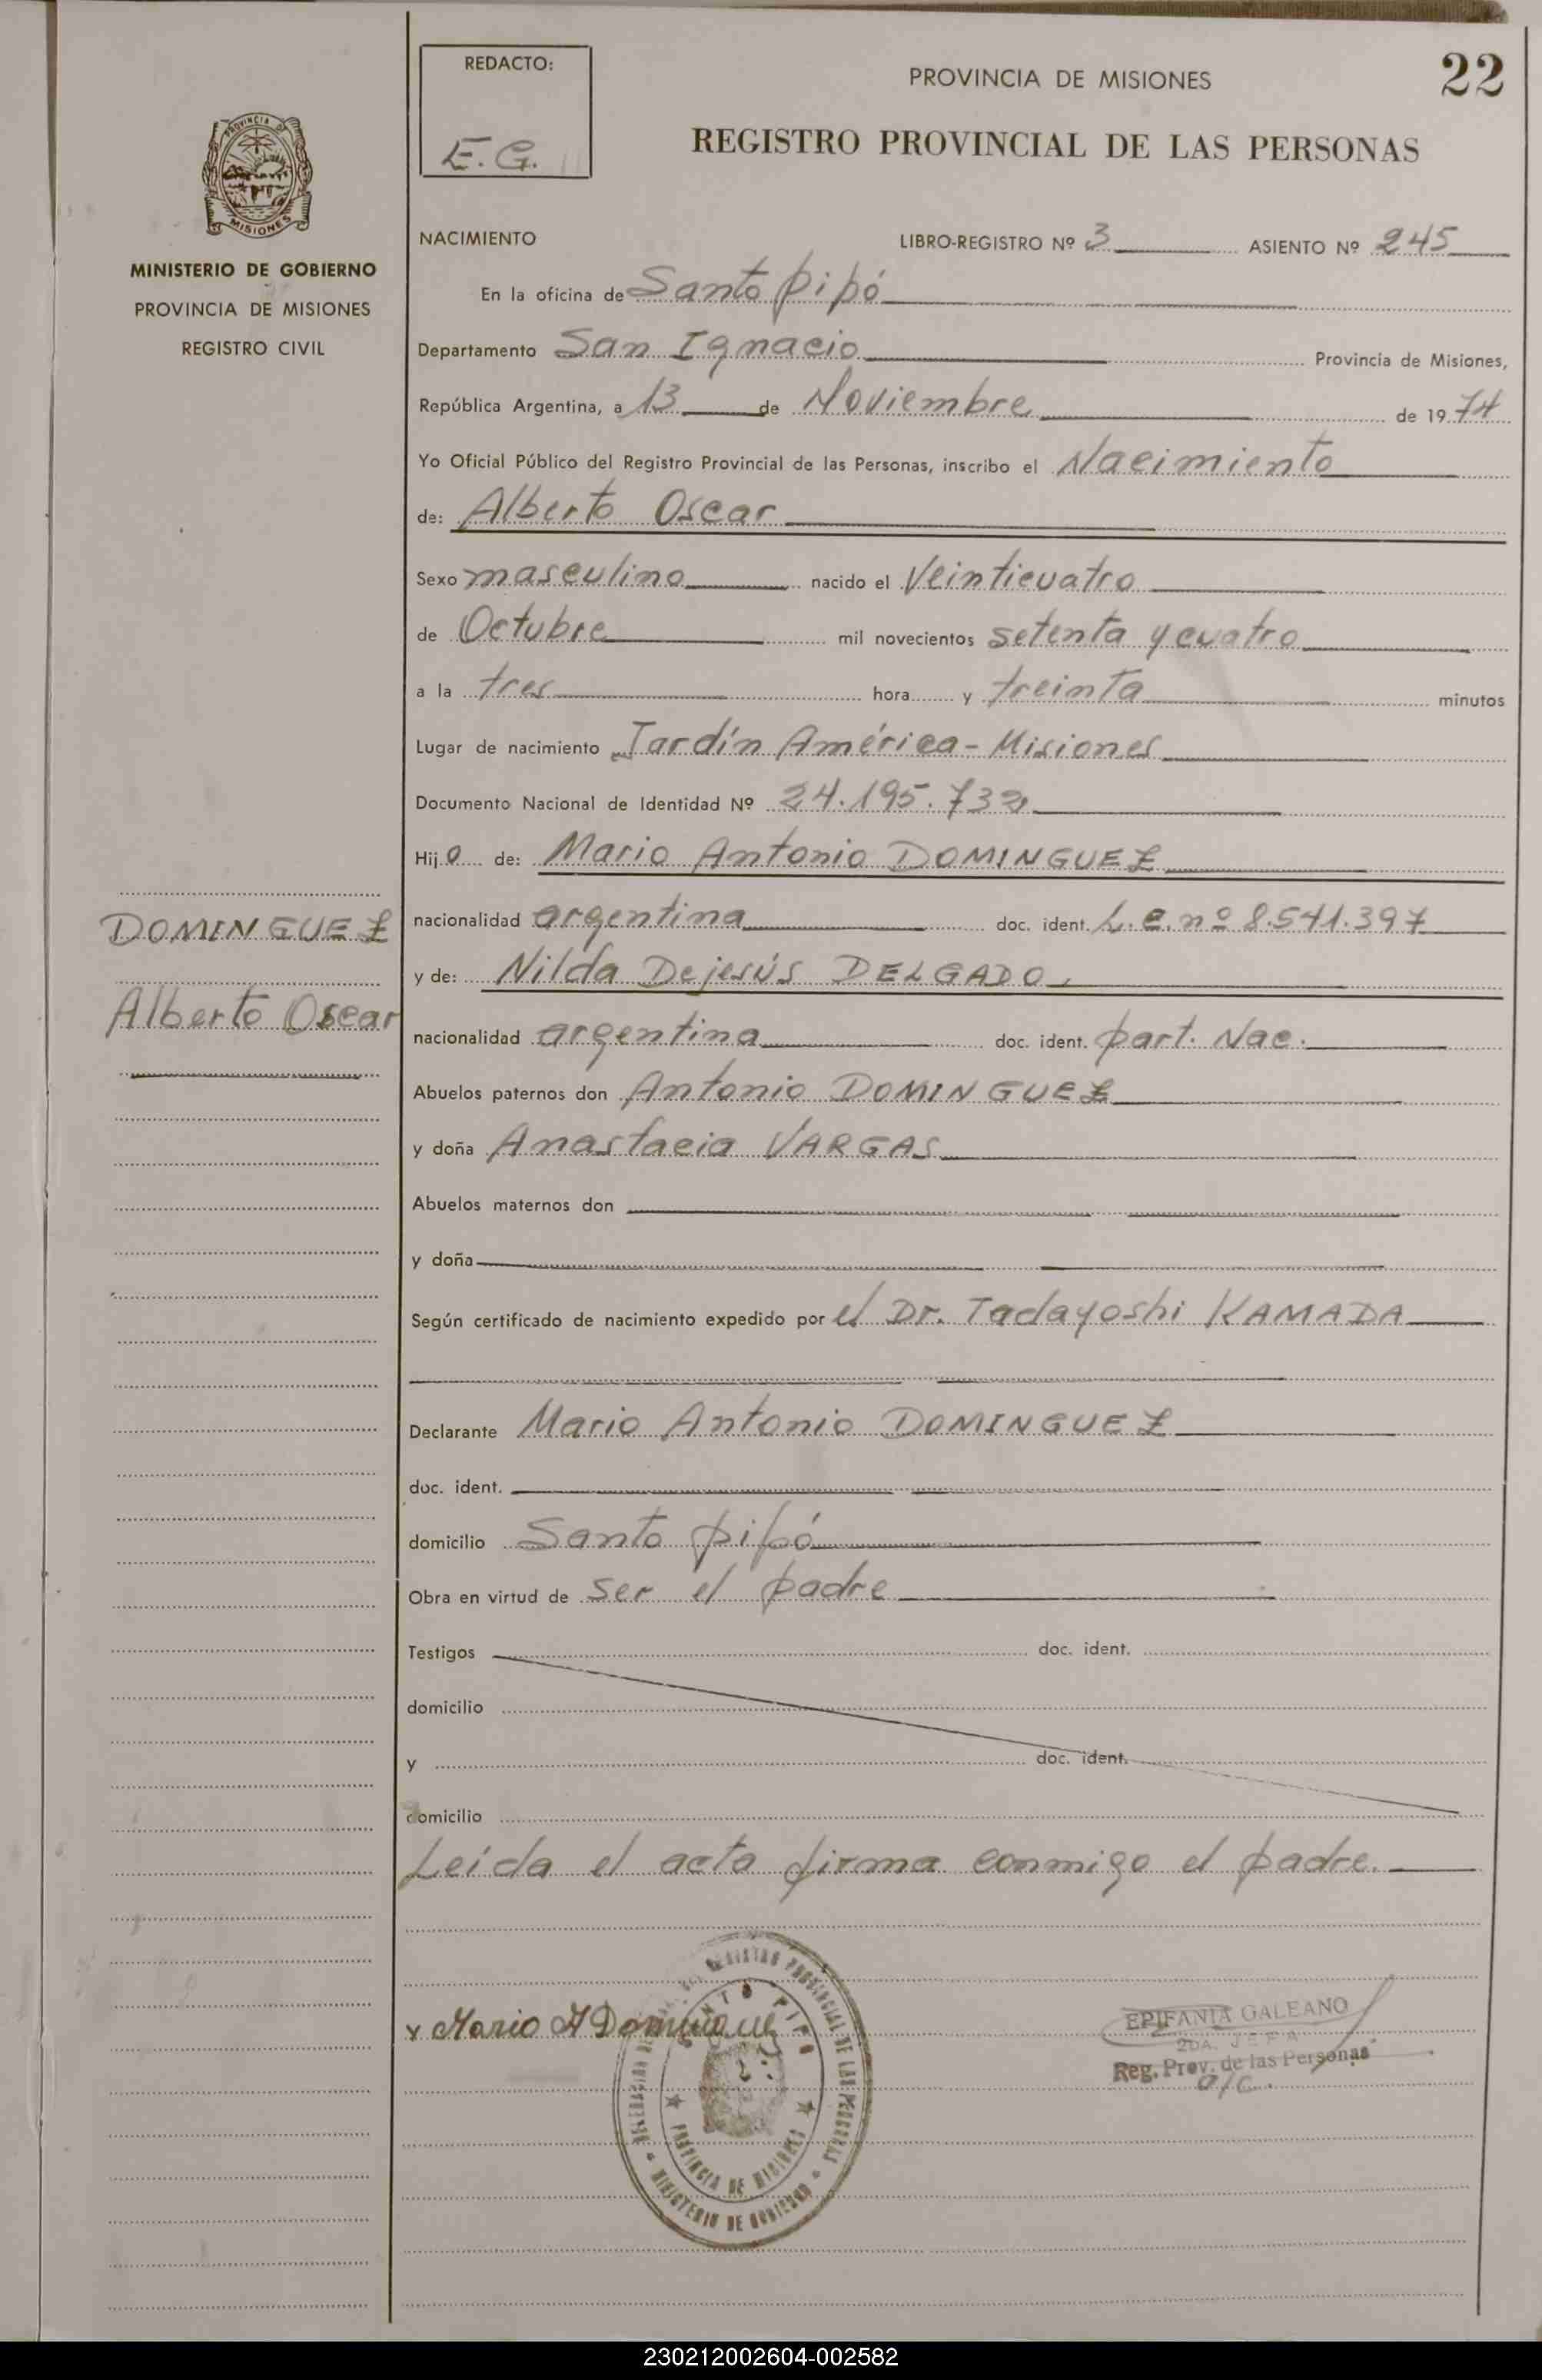 22
REDACTO:
E.G.
PROVINCIA DE MISIONES
REGISTRO PROVINCIAL DE LAS PERSONAS
PROVINCIA DE
MISIONES
MINISTERIO DE GOBIERNO
PROVINCIA DE MISIONES
REGISTRO CIVIL
NACIMIENTO LIBRO-REGISTRO Nº 3 ASIENTO Nº 245
En la oficina de Santo pipó
Departamento San Ignacio Provincia de Misiones,
República Argentina, a 13 de Noviembre de 1974
Yo Oficial Público del Registro Provincial de las Personas, inscribo el Nacimiento
de: Alberto Oscar
Sexo masculino nacido el Veinticuatro
de Octubre mil novecientos setenta y cuatro
a la tres hora y treinta minutos
Lugar de nacimiento Jardín América - Misiones
Documento Nacional de Identidad Nº 24.195.732
Hijo de: Mario Antonio DOMINGUEZ
DOMINGUEZ
Alberto Oscar
nacionalidad argentina doc. ident. L.e. nº 8.541.397
y de: Nilda Dejesús DELGADO
nacionalidad argentina doc. ident. part. Nac.
Abuelos paternos don Antonio DOMINGUEZ
y doña Anastacia VARGAS
Abuelos maternos don
y doña
Según certificado de nacimiento expedido por el Dr. Tadayoshi KAMADA
Declarante Mario Antonio DOMINGUEZ
doc. ident.
domicilio Santo pipó
Obra en virtud de ser el padre
Testigos doc. ident.
domicilio
y doc. ident.
domicilio
Leída el acta firma conmigo el padre.
x Mario A Dominguez
REGISTRO PROVINCIAL DE LAS PERSONAS
SANTO PIPO
PROVINCIA DE MISIONES
MINISTERIO DE GOBIERNO
EPIFANIA GALEANO
2DA. JEFA
Reg. Prov. de las Personas
a/c.
230212002604-002582